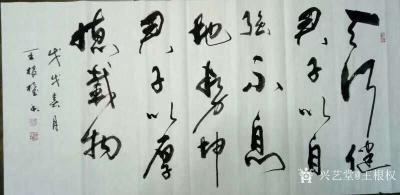 天行健
君子以自
强不息
地势坤
君子以厚
德载物
戊戌春月
王根权书
兴艺堂@王根权